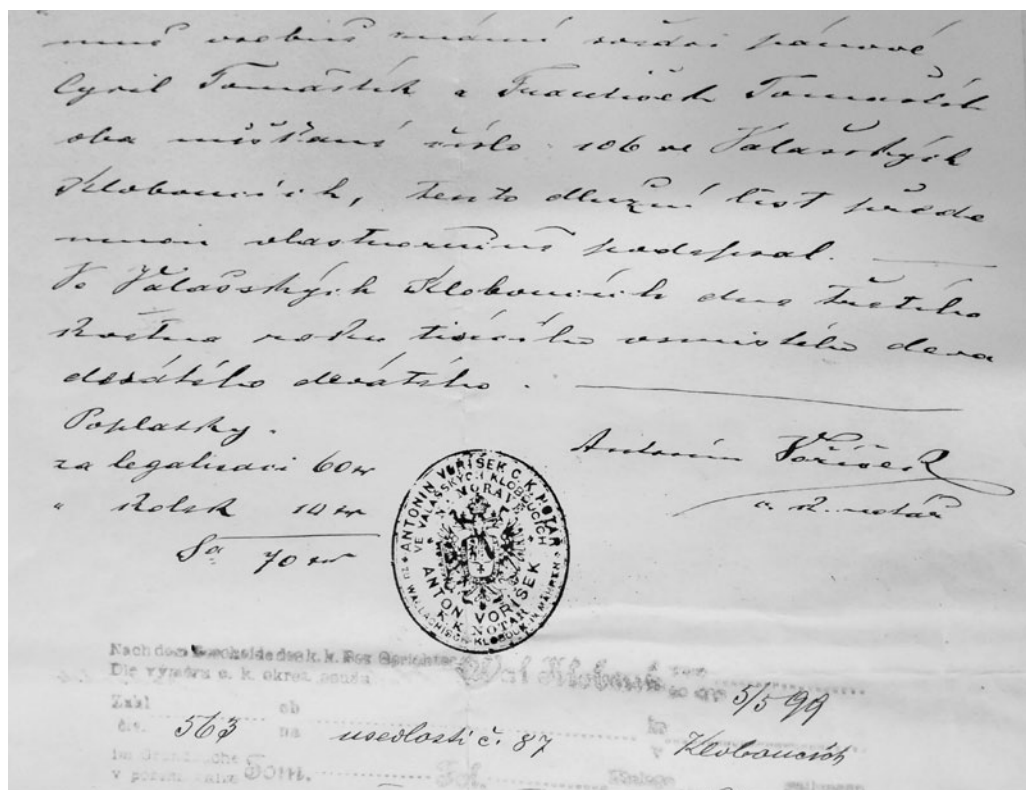 mně osobně známí svědci pánové
Cyril Tomaštík a František Tomaštík
oba měšťané číslo 106 ve Valašských
Kloboucích, tento dlužní list přede
mnou vlastnoručně podepsal.
Ve Valašských Kloboucích dne třetího
května roku tisícého osmistého deva
desátého devátého.
Poplatky.
za legalisaci 60 kr
" kolek 10 kr
Sa 70 kr
Antonín Voříšek
c. k. notář
ANTONIN VOŘÍŠEK C. K. NOTÁŘ
VE VALAŠSKÝCH KLOBOUCÍCH
NA MORAVĚ
ANTON VOŘIŠEK
K. K. NOTAR
ZU WALLACHISCH-KLOBOUK IN MÄHREN
Nach dem Bescheide des k. k. Bez. Gerichtes Wal. Klobouk vom
Dle výměru c. k. okres. soudu ze dne 5/5 99
Zahl ob
čís. 563 na usedlosti č. 87 v Kloboucích
im Grundbuche
v pozem. knize Tom. Fol.